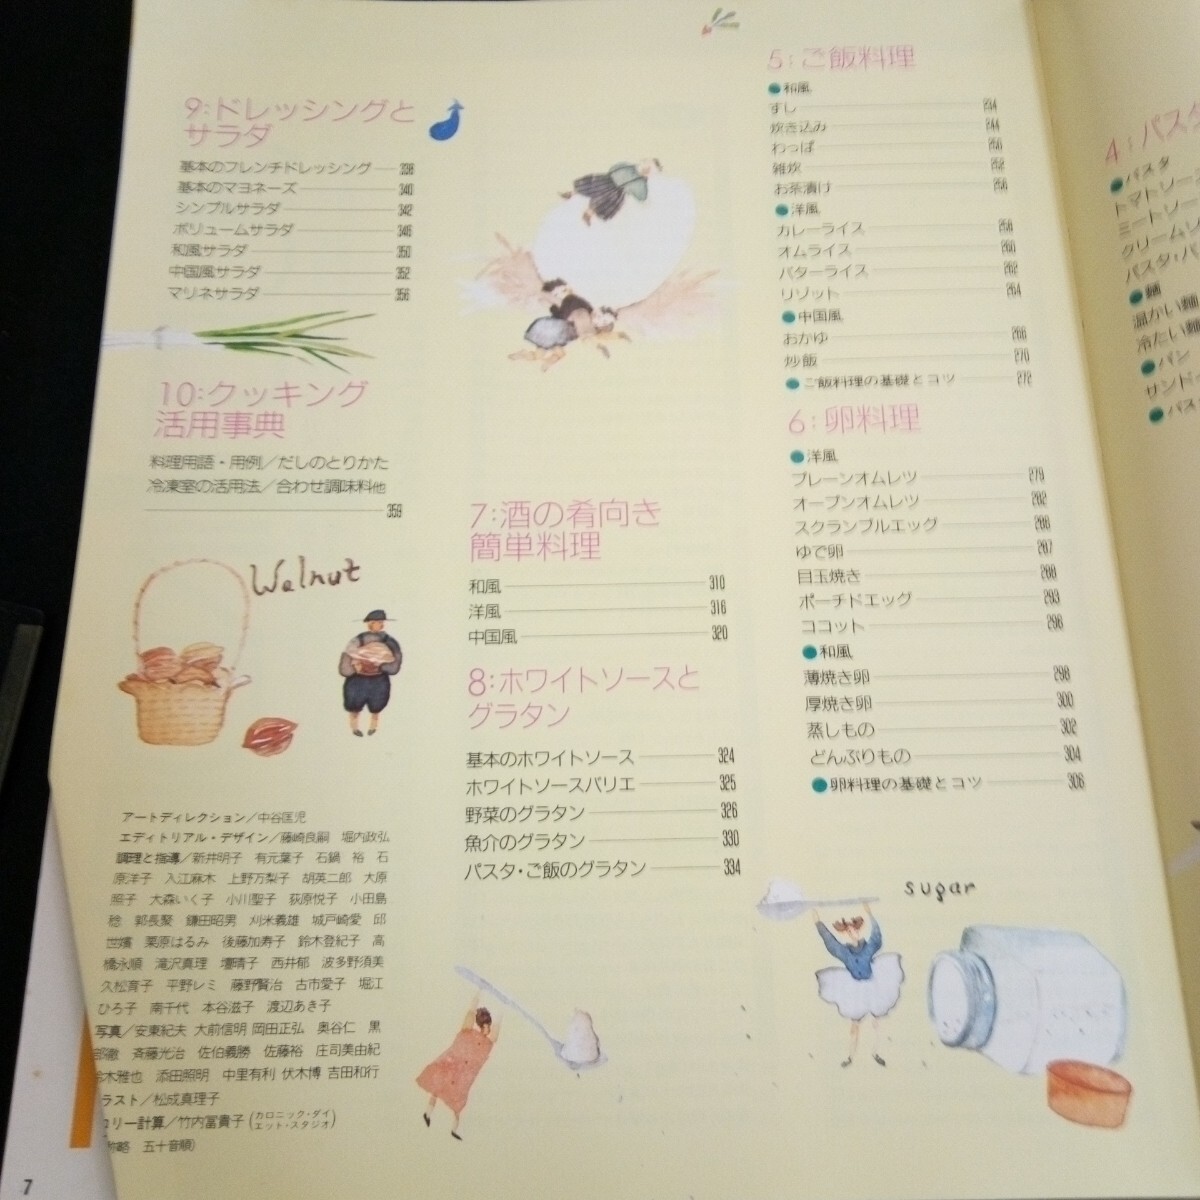 5:ご飯料理
●和風
すし 234
炊き込み 244
わっぱ 250
雑炊 252
お茶漬け 256
●洋風
カレーライス 258
オムライス 260
バターライス 262
リゾット 264
●中国風
おかゆ 266
炒飯 270
●ご飯料理の基礎とコツ 272
6:卵料理
●洋風
プレーンオムレツ 279
オープンオムレツ 282
スクランブルエッグ 286
ゆで卵 287
目玉焼き
ポーチドエッグ 293
ココット 296
●和風
薄焼き卵 298
厚焼き卵 300
蒸しもの 302
どんぶりもの 304
●卵料理の基礎とコツ 306
7:酒の肴向き
簡単料理
和風 310
洋風 316
中国風 320
8:ホワイトソースと
グラタン
基本のホワイトソース 324
ホワイトソースバリエ 325
野菜のグラタン 326
魚介のグラタン 330
パスタ・ご飯のグラタン 334
9:ドレッシングと
サラダ
基本のフレンチドレッシング 338
基本のマヨネーズ 340
シンプルサラダ 342
ボリュームサラダ 346
和風サラダ 350
中国風サラダ 352
マリネサラダ 356
10:クッキング
活用事典
料理用語・用例/だしのとりかた
冷凍室の活用法/合わせ調味料他
359
Walnut
sugar
アートディレクション/中谷匡児
エディトリアル・デザイン/藤崎良嗣 堀内政弘
調理と指導/新井明子 有元葉子 石鍋 裕 石
原洋子 入江麻木 上野万梨子 胡英二郎 大原
照子 大森いく子 小川聖子 荻原悦子 小田島
稔 郭長聚 鎌田昭男 刈米義雄 城戸崎愛 邱
世嬪 栗原はるみ 後藤加寿子 鈴木登紀子 高
橋永順 滝沢真理 壇晴子 西井郁 波多野須美
久松育子 平野レミ 藤野賢治 古市愛子 堀江
ひろ子 南千代 本谷滋子 渡辺あき子
写真/安東紀夫 大前信明 岡田正弘 奥谷仁 黒
部徹 斉藤光治 佐伯義勝 佐藤裕 庄司美由紀
鈴木雅也 添田照明 中里有利 伏木博 吉田和行
ラスト/松成真理子
ロリー計算/竹内冨貴子(カロニック・ダイ
エット・スタジオ)
称略 五十音順)
7
4:パスタ
●パスタ
トマトソー
ミートソー
クリームソ
パスタ・バ
●麺
温かい麺
冷たい麺
●パン
サンド
●パス